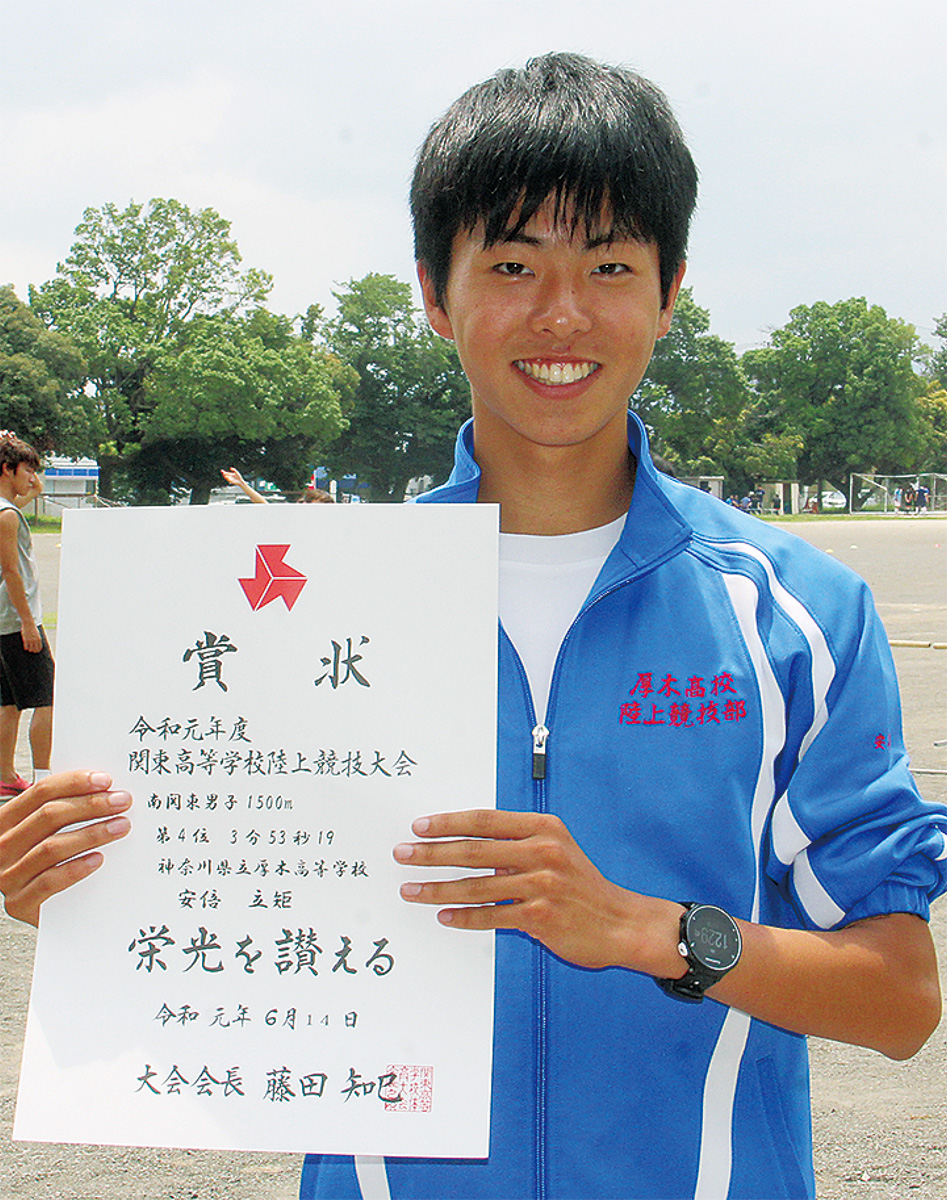 賞 状
令和元年度
関東高等学校陸上競技大会
南関東男子1500m
第4位 3分53秒19
神奈川県立厚木高等学校
安倍 立矩
栄光を讃える
令和元年6月14日
大会会長 藤田 知巳
厚木高校
陸上競技部
安